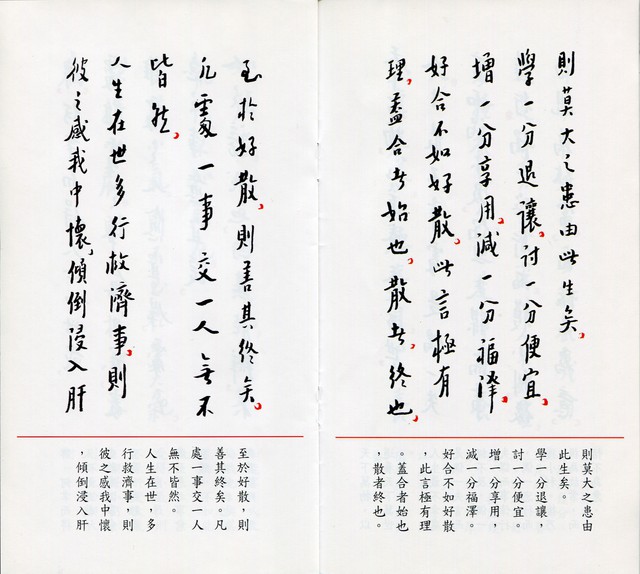 則莫大之患由此生矣，
學一分退讓，討一分便宜，
增一分享用，減一分福澤，
好合不如好散，此言極有
理，蓋合者始也，散者，終也，
則莫大之患由
此生矣。
學一分退讓，
討一分便宜。
增一分享用，
減一分福澤。
好合不如好散
，此言極有理
。蓋合者始也
，散者終也。
至於好散，則善其終矣，
凡處一事交一人無不
皆然，
人生在世多行救濟事，則
彼之感我中懷，傾倒浸入肝
至於好散，則
善其終矣。凡
處一事交一人
無不皆然。
人生在世，多
行救濟事，則
彼之感我中懷
，傾倒浸入肝